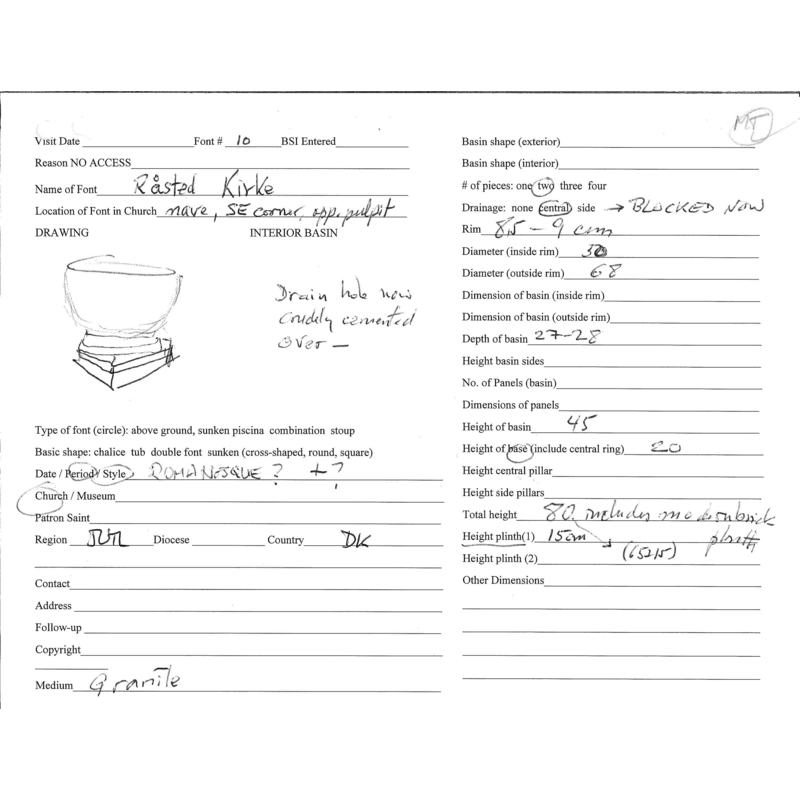 MT
Visit Date Font # 10 BSI Entered
Reason NO ACCESS
Name of Font Råsted Kirke
Location of Font in Church nave, SE corner, opp. pulpit
DRAWING INTERIOR BASIN
Drain hole now
crudely cemented
over —
Type of font (circle): above ground, sunken piscina combination stoup
Basic shape: chalice tub double font sunken (cross-shaped, round, square)
Date / Period / Style ROMANESQUE ? + ?
Church / Museum
Patron Saint
Region JUTL Diocese Country DK
Contact
Address
Follow-up
Copyright
Medium Granite
Basin shape (exterior)
Basin shape (interior)
# of pieces: one two three four
Drainage: none central side → BLOCKED NOW
Rim 8,5 – 9 cm
Diameter (inside rim)
Diameter (outside rim) 68
Dimension of basin (inside rim)
Dimension of basin (outside rim)
Depth of basin 27-28
Height basin sides
No. of Panels (basin)
Dimensions of panels
Height of basin 45
Height of base (include central ring) 20
Height central pillar
Height side pillars
Total height 80 includes modern brick
plinth
Height plinth(1) 15cm
Height plinth (2) (65+15)
Other Dimensions